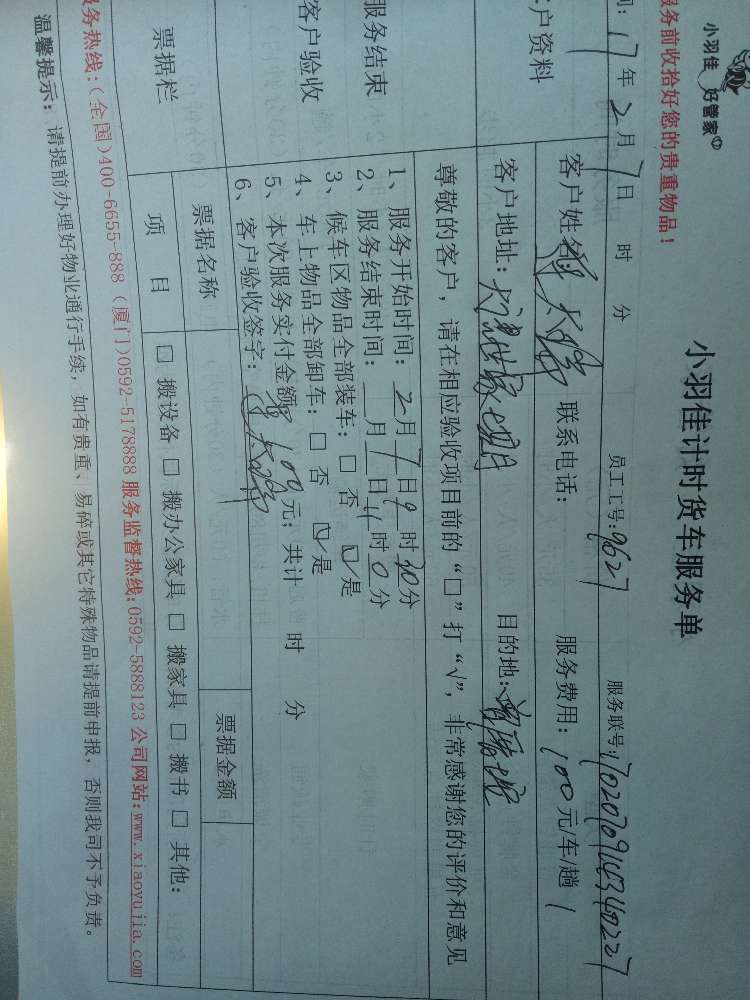 小羽佳 好管家
服务前收拾好您的贵重物品！
小羽佳计时货车服务单
17年2月7日 时 分 员工工号:9627 服务联号:
户资料
客户姓名 联系电话: 服务费用: 100元/车/趟
客户地址: 目的地:
尊敬的客户，请在相应验收项目前的“□”打“√”，非常感谢您的评价和意见
服务结束
客户验收
1、服务开始时间: 2月7日9时30分
2、服务结束时间: 月 日11时0分
3、候车区物品全部装车: □ 否 □ 是
4、车上物品全部卸车: □ 否 □ 是
5、本次服务实付金额 100元; 共计 时 分
6、客户验收签字:
票据栏
票据名称 票据金额
项 目 □ 搬设备 □ 搬办公家具 □ 搬家具 □ 搬书 □ 其他:
服务热线:(全国)400-6655-888 (厦门)0592-5178888 服务监督热线:0592-5888123 公司网站:www.xiaoyujia.com
温馨提示: 请提前办理好物业通行手续，如有贵重、易碎或其它特殊物品请提前申报，否则我司不予负责。